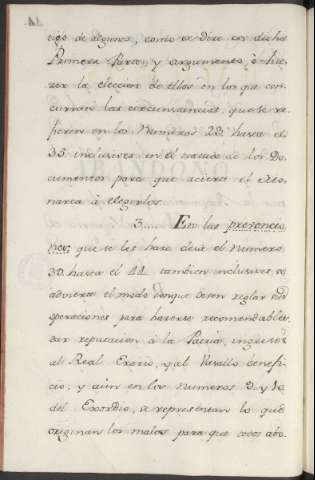 cigo de algunos, como se dize en dicha
Primera Parte, y argumento, ò ha-
zer la eleccion de ellos en los que con-
curran las circunstancias, que se re-
fieren en los Numeros 23. hasta el
33. inclusives en el tratado de los Do-
cumentos para que acierte el Mo-
narca à elegirlos.
3.... En las prevencio-
nes, que se les hace desde el numero
30. hasta el 44. tambien inclusives se
advierte el modo conque deven reglar sus
operaciones para hacerse recomendables,
dar reputacion à la Patria, ingresos
al Real Erario, y al Vasallo benefi-
cio; y aùn en los numeros 9. y 10.
del Exordio, se representan lo què
originan los malos, para que todos abo-